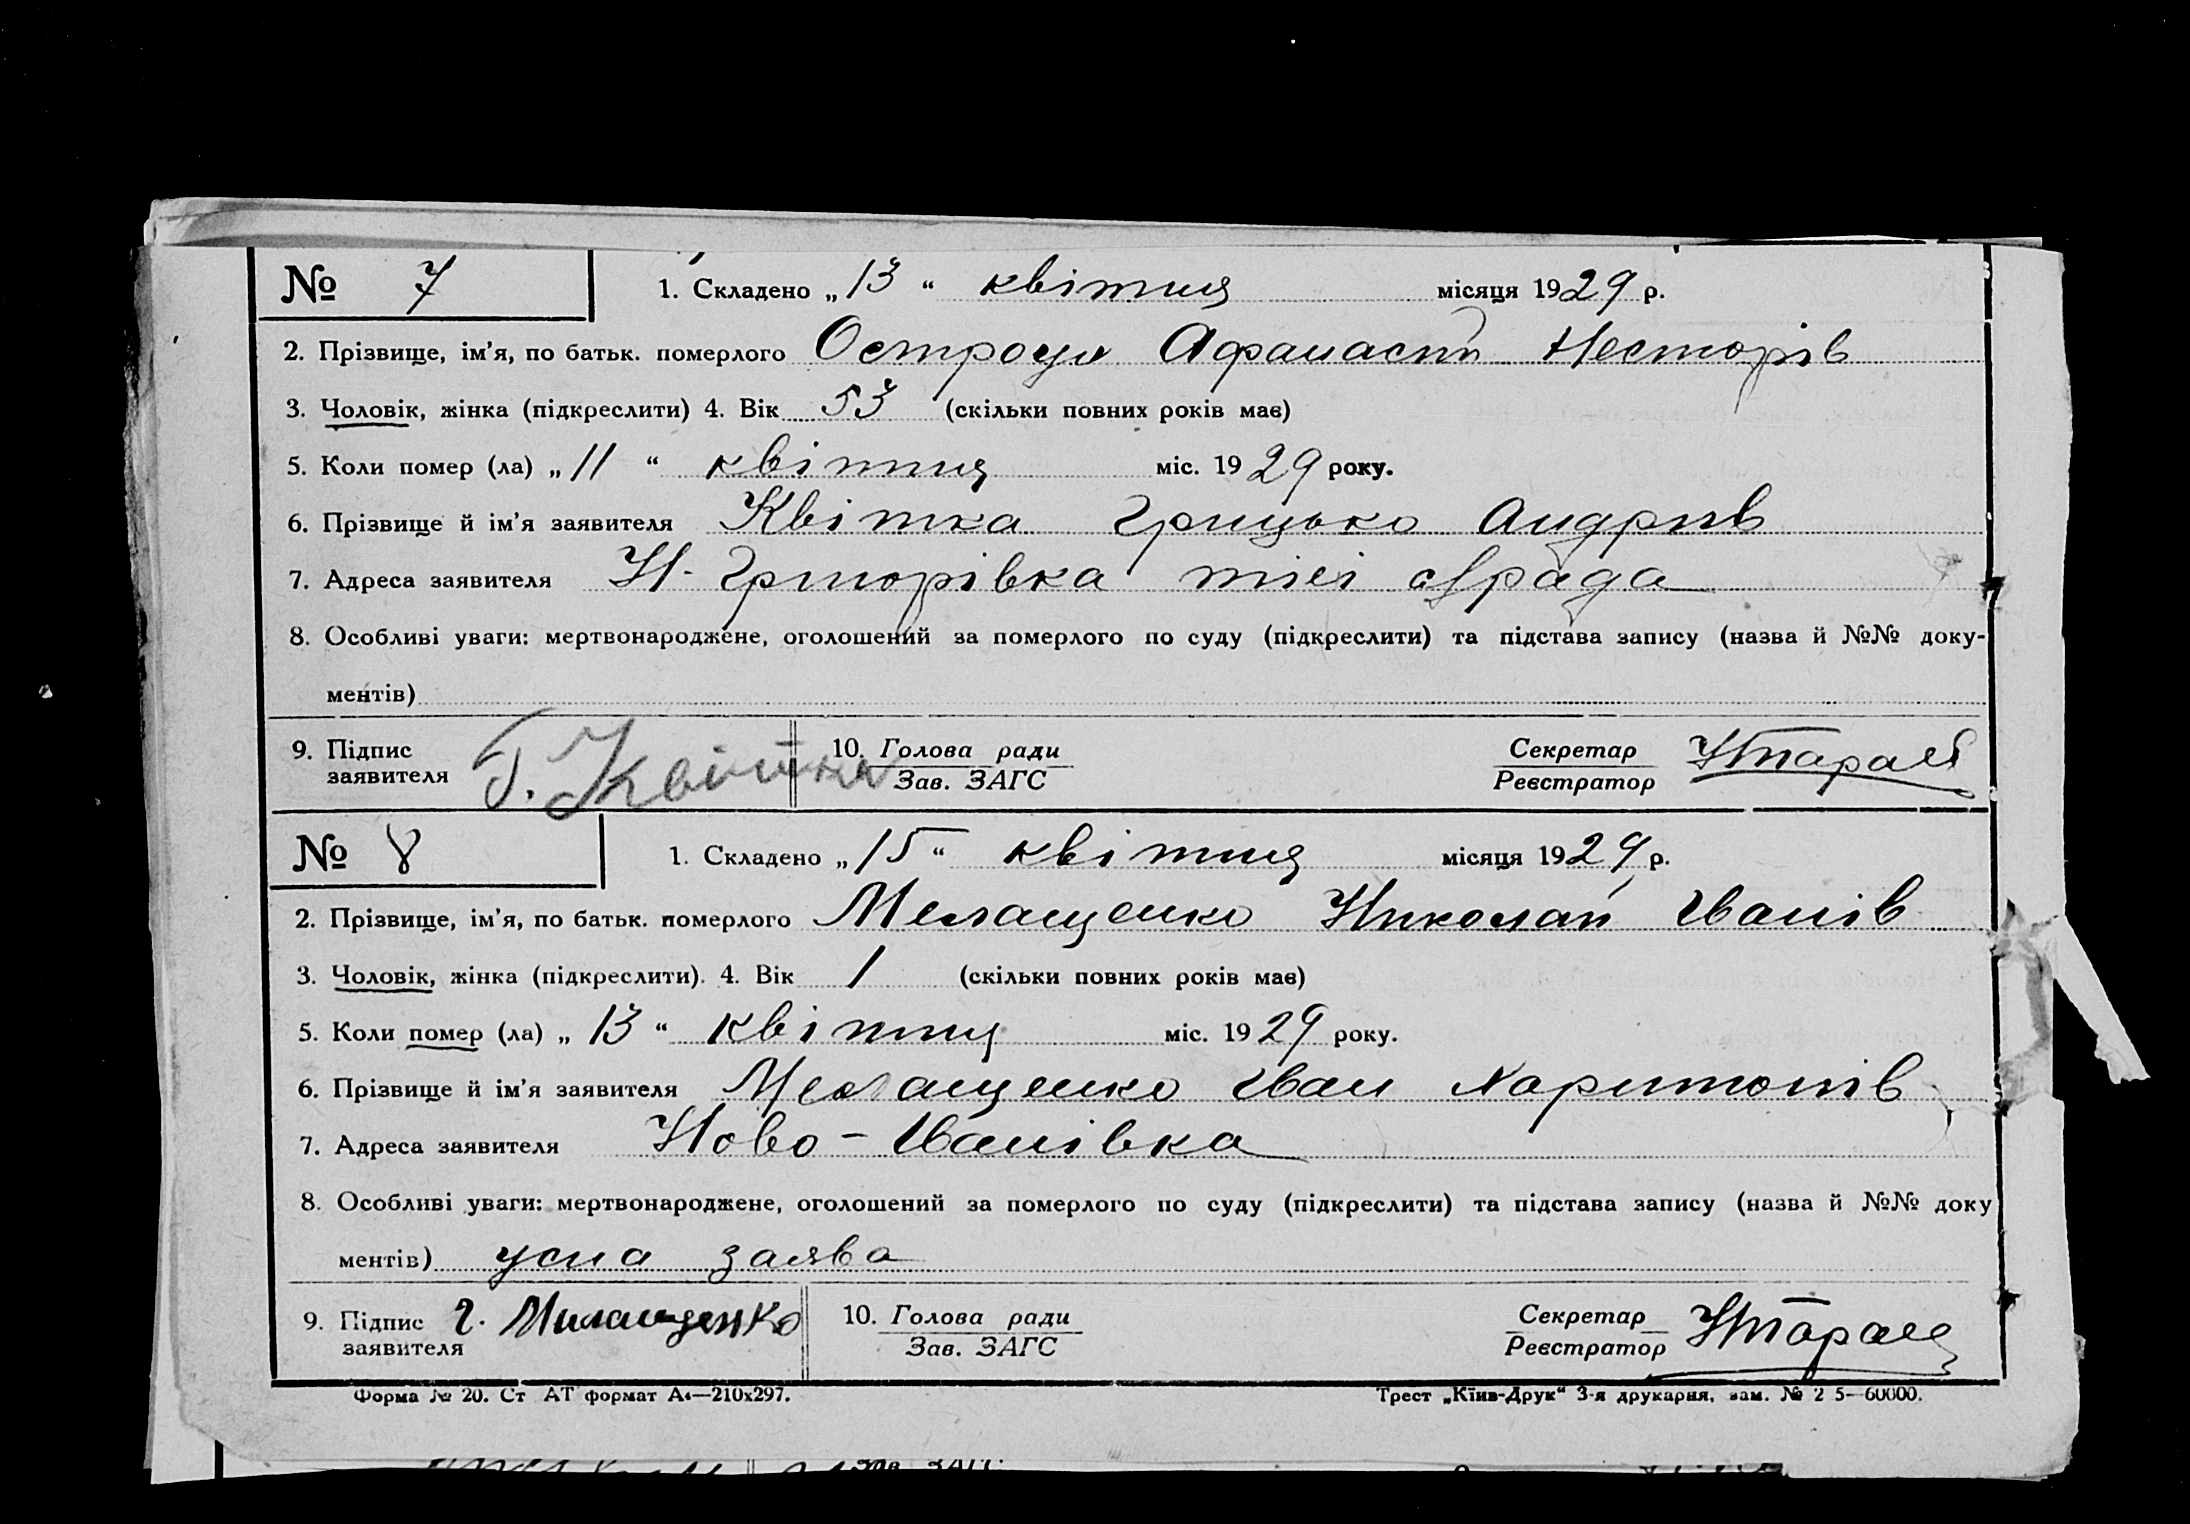 № 7 1. Складено „13“ квітня місяця 1929 р.
2. Прізвище, ім'я, по батьк. померлого Остроух Афанасій Несторів
3. Чоловік, жінка (підкреслити) 4. Вік 53 (скільки повних років має)
5. Коли помер (ла) „11“ квітня міс. 1929 року.
6. Прізвище й ім'я заявителя Квітка Грицько Андріїв
7. Адреса заявителя Н-Григорівка тієї с/рада
8. Особливі уваги: мертвонароджене, оголошений за померлого по суду (підкреслити) та підстава запису (назва й №№ доку-
ментів)
9. Підпис заявителя Г. Квітка 10. Голова ради Зав. ЗАГС Секретар Реєстратор
№ 8 1. Складено „15“ квітня місяця 1929 р.
2. Прізвище, ім'я, по батьк. померлого Мелащенко Николай Іванів
3. Чоловік, жінка (підкреслити). 4. Вік 1 (скільки повних років має)
5. Коли помер (ла) „13“ квітня міс. 1929 року.
6. Прізвище й ім'я заявителя Мелащенко Іван Харитонів
7. Адреса заявителя Ново-Іванівка
8. Особливі уваги: мертвонароджене, оголошений за померлого по суду (підкреслити) та підстава запису (назва й №№ доку
ментів) усна заява
9. Підпис заявителя І. Милащенко 10. Голова ради Зав. ЗАГС Секретар Реєстратор
Форма № 20. Ст АТ формат А4—210х297. Трест „Київ-Друк“ 3-я друкарня, зам. № 2 5—60000.